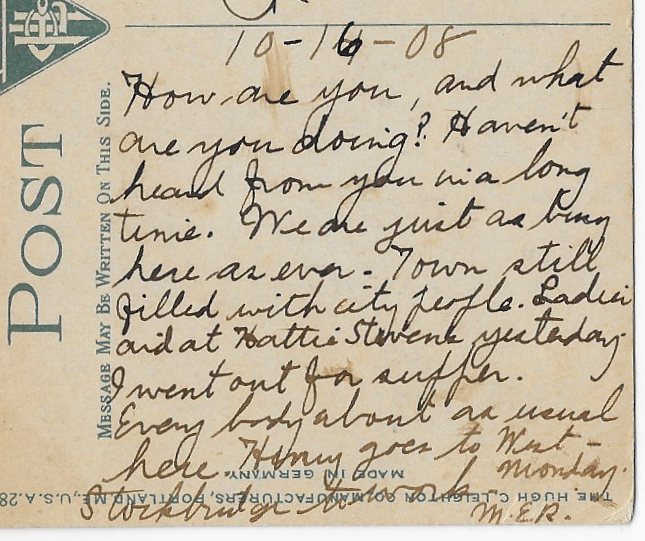 10-16-08
How are you, and what
are you doing? Haven't
heard from you in a long
time. We are just as busy
here as ever. Town still
filled with city people. Ladies
aid at Hattie Stevens yesterday.
I went out for supper.
Every body about as usual
here. Henry goes to West-
Stockbridge to work Monday.
M.E.R.
POST
MESSAGE MAY BE WRITTEN ON THIS SIDE.
THE HUGH C. LEIGHTON CO. MANUFACTURERS, PORTLAND, ME., U.S.A. 28
MADE IN GERMANY.